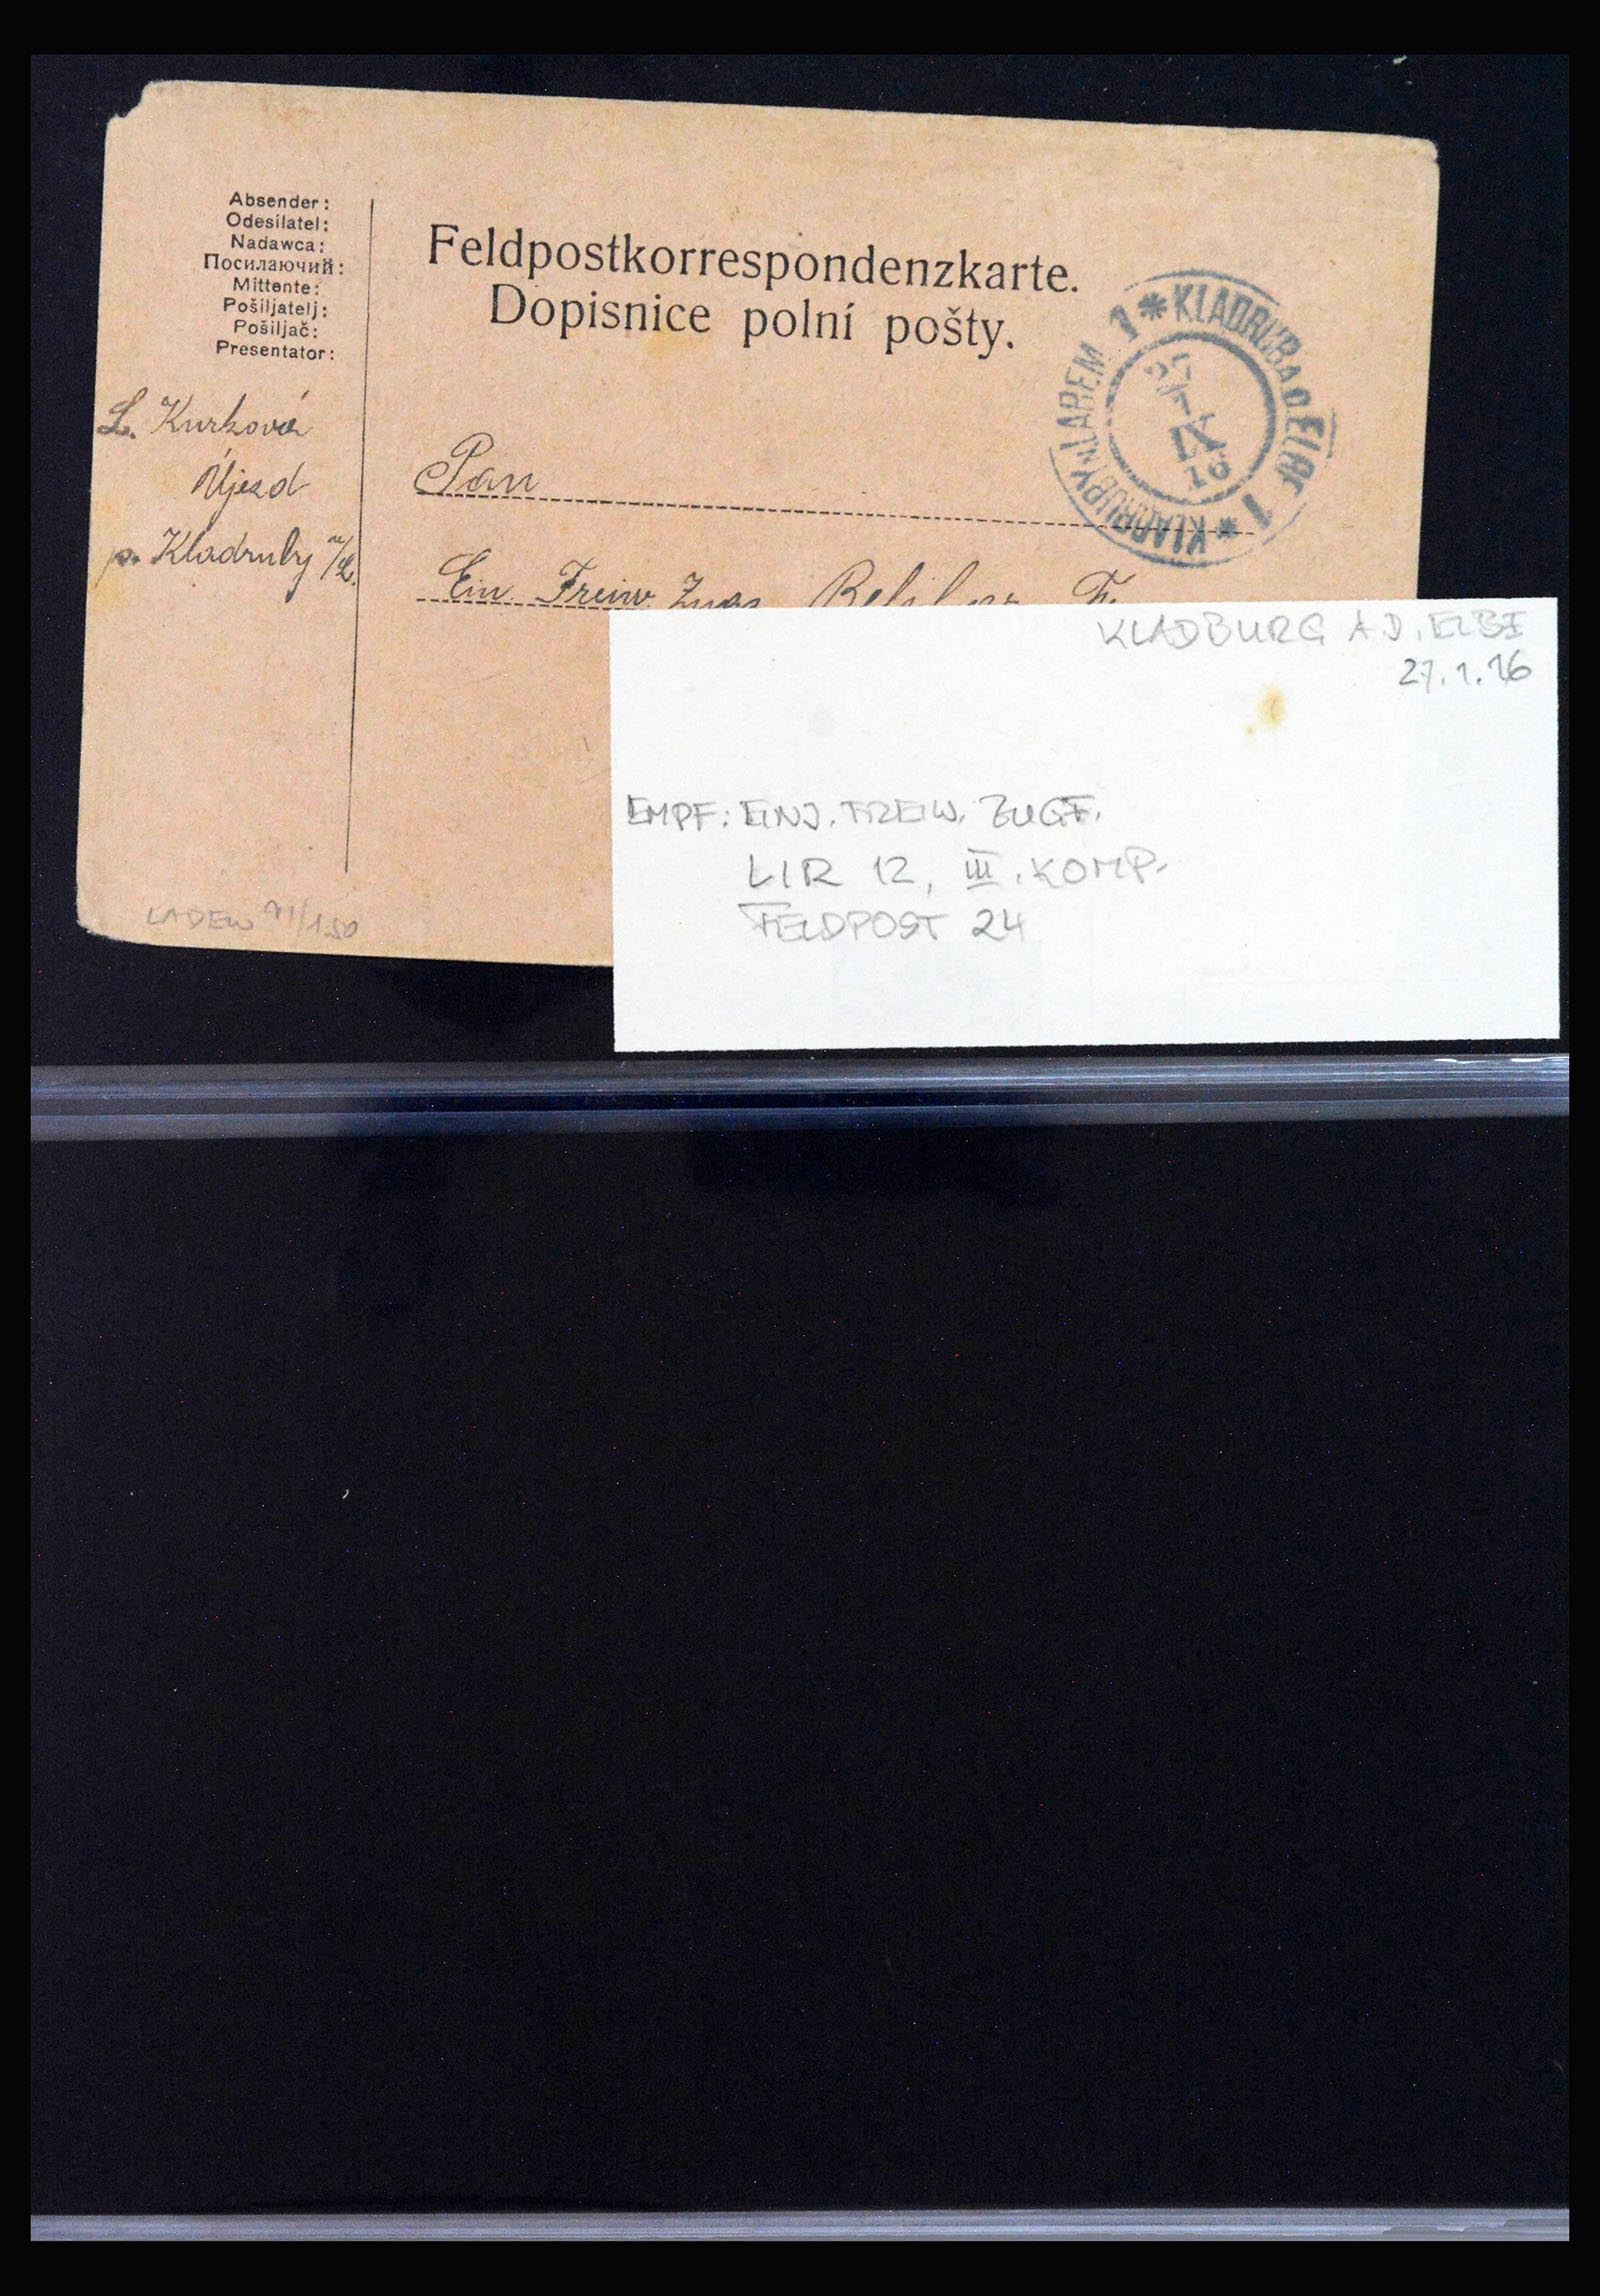 Absender:
Odesílatel:
Nadawca:
Посилаючий:
Mittente:
Pošiljatelj:
Pošiljač:
Presentator:
L. Kurková
Újezd
p. Kladruby n/L.
Feldpostkorrespondenzkarte.
Dopisnice polní pošty.
1 * KLADRUB A.D. ELBE 1 * KLADRUBY N. LABEM
27
IX
16
Pan
Ein. Freiw. Zugs F.
LADEN 91/150
KLADBURG A.D. ELBE
27.1.16
EMPF: EINJ. FREIW. ZUGF.
LIR 12, III. KOMP.
FELDPOST 24